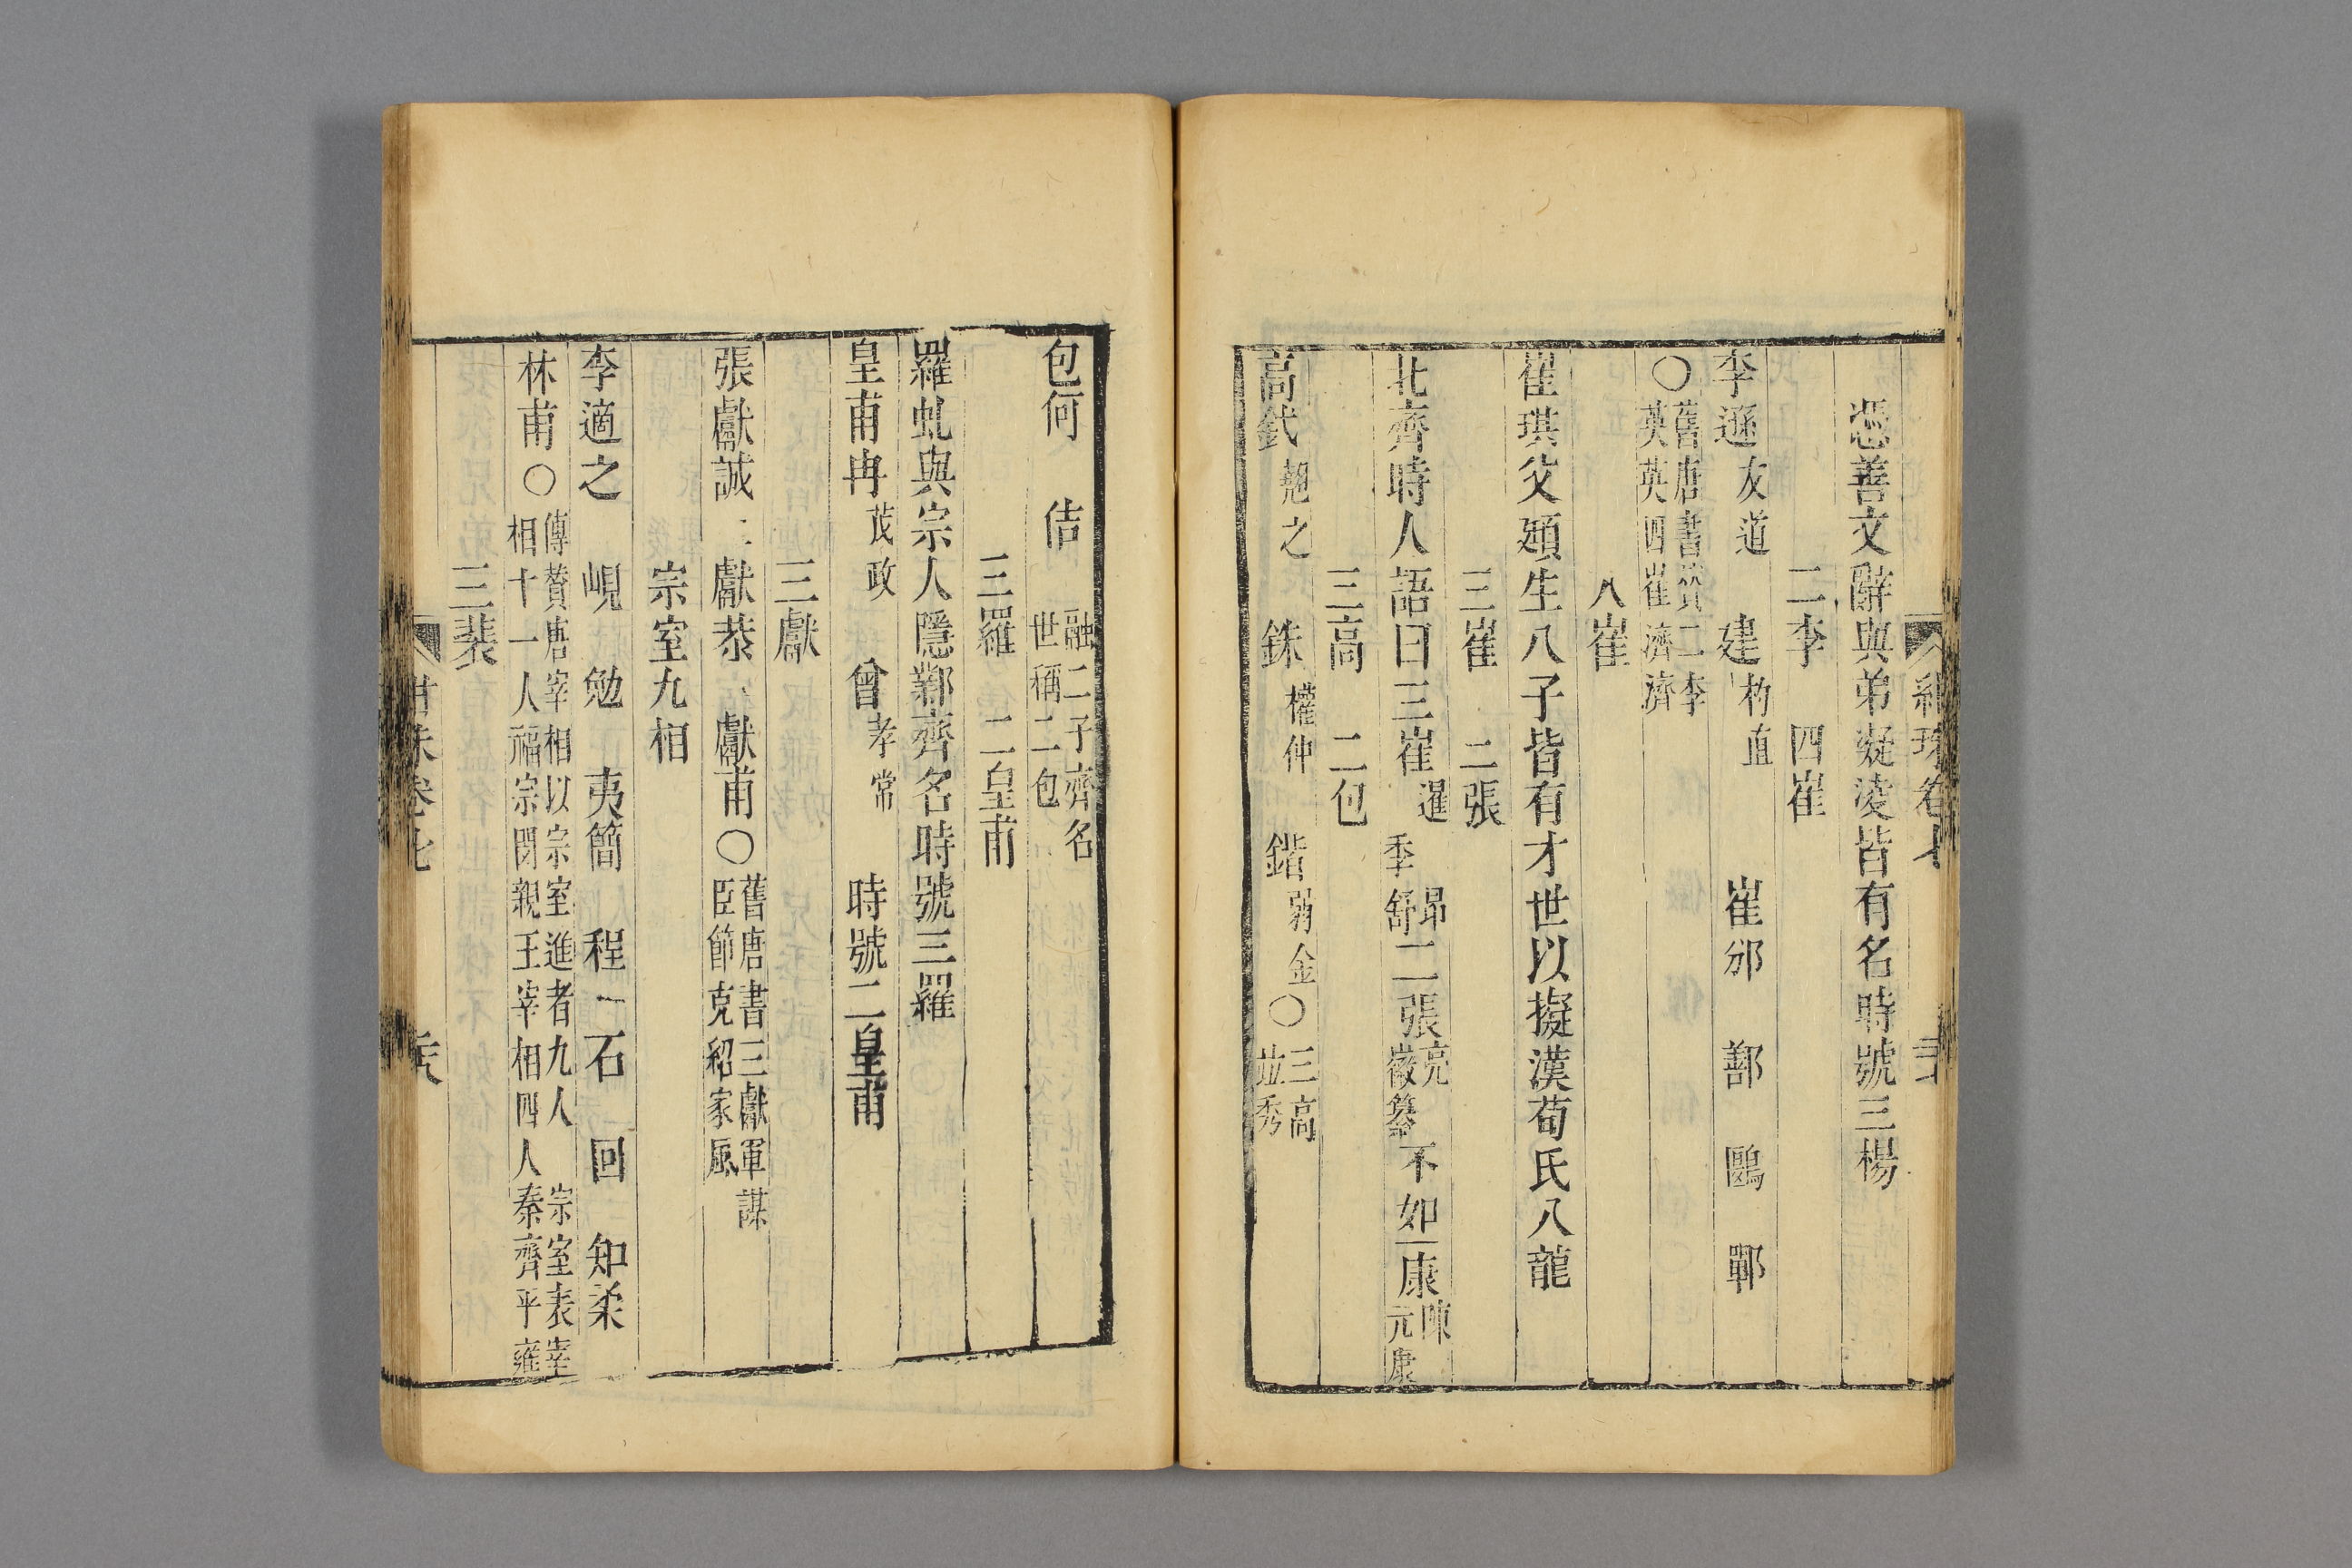 憑善文辭與弟凝凌皆有名時號三楊
二李 四崔
李遜友道 建杓直 崔邠 鄯 鷗 鄲
○舊唐書贊二李
英英四崔濟濟
八崔
崔琪父頲生八子皆有才世以擬漢荀氏八龍
三崔 二張
北齊時人語曰三崔暹季舒昂二張亮徽纂不如一康陳元康
三高 二包
高釴翹之 銖權仲 鍇弱金○三高並秀
包何 佶 融二子齊名
世稱二包
三羅 二皇甫
羅虬與宗人隱鄴齊名時號三羅
皇甫冉茂政 曾孝常 時號二皇甫
三獻
張獻誠 獻恭 獻甫○舊唐書三獻軍謀
臣節克紹家風
宗室九相
李適之 峴 勉 夷簡 程 石 回 知柔
林甫○傳贊唐宰相以宗室進者九人 宗室表宰
相十一人福宗閔親王宰相四人秦齊平雍
三裴